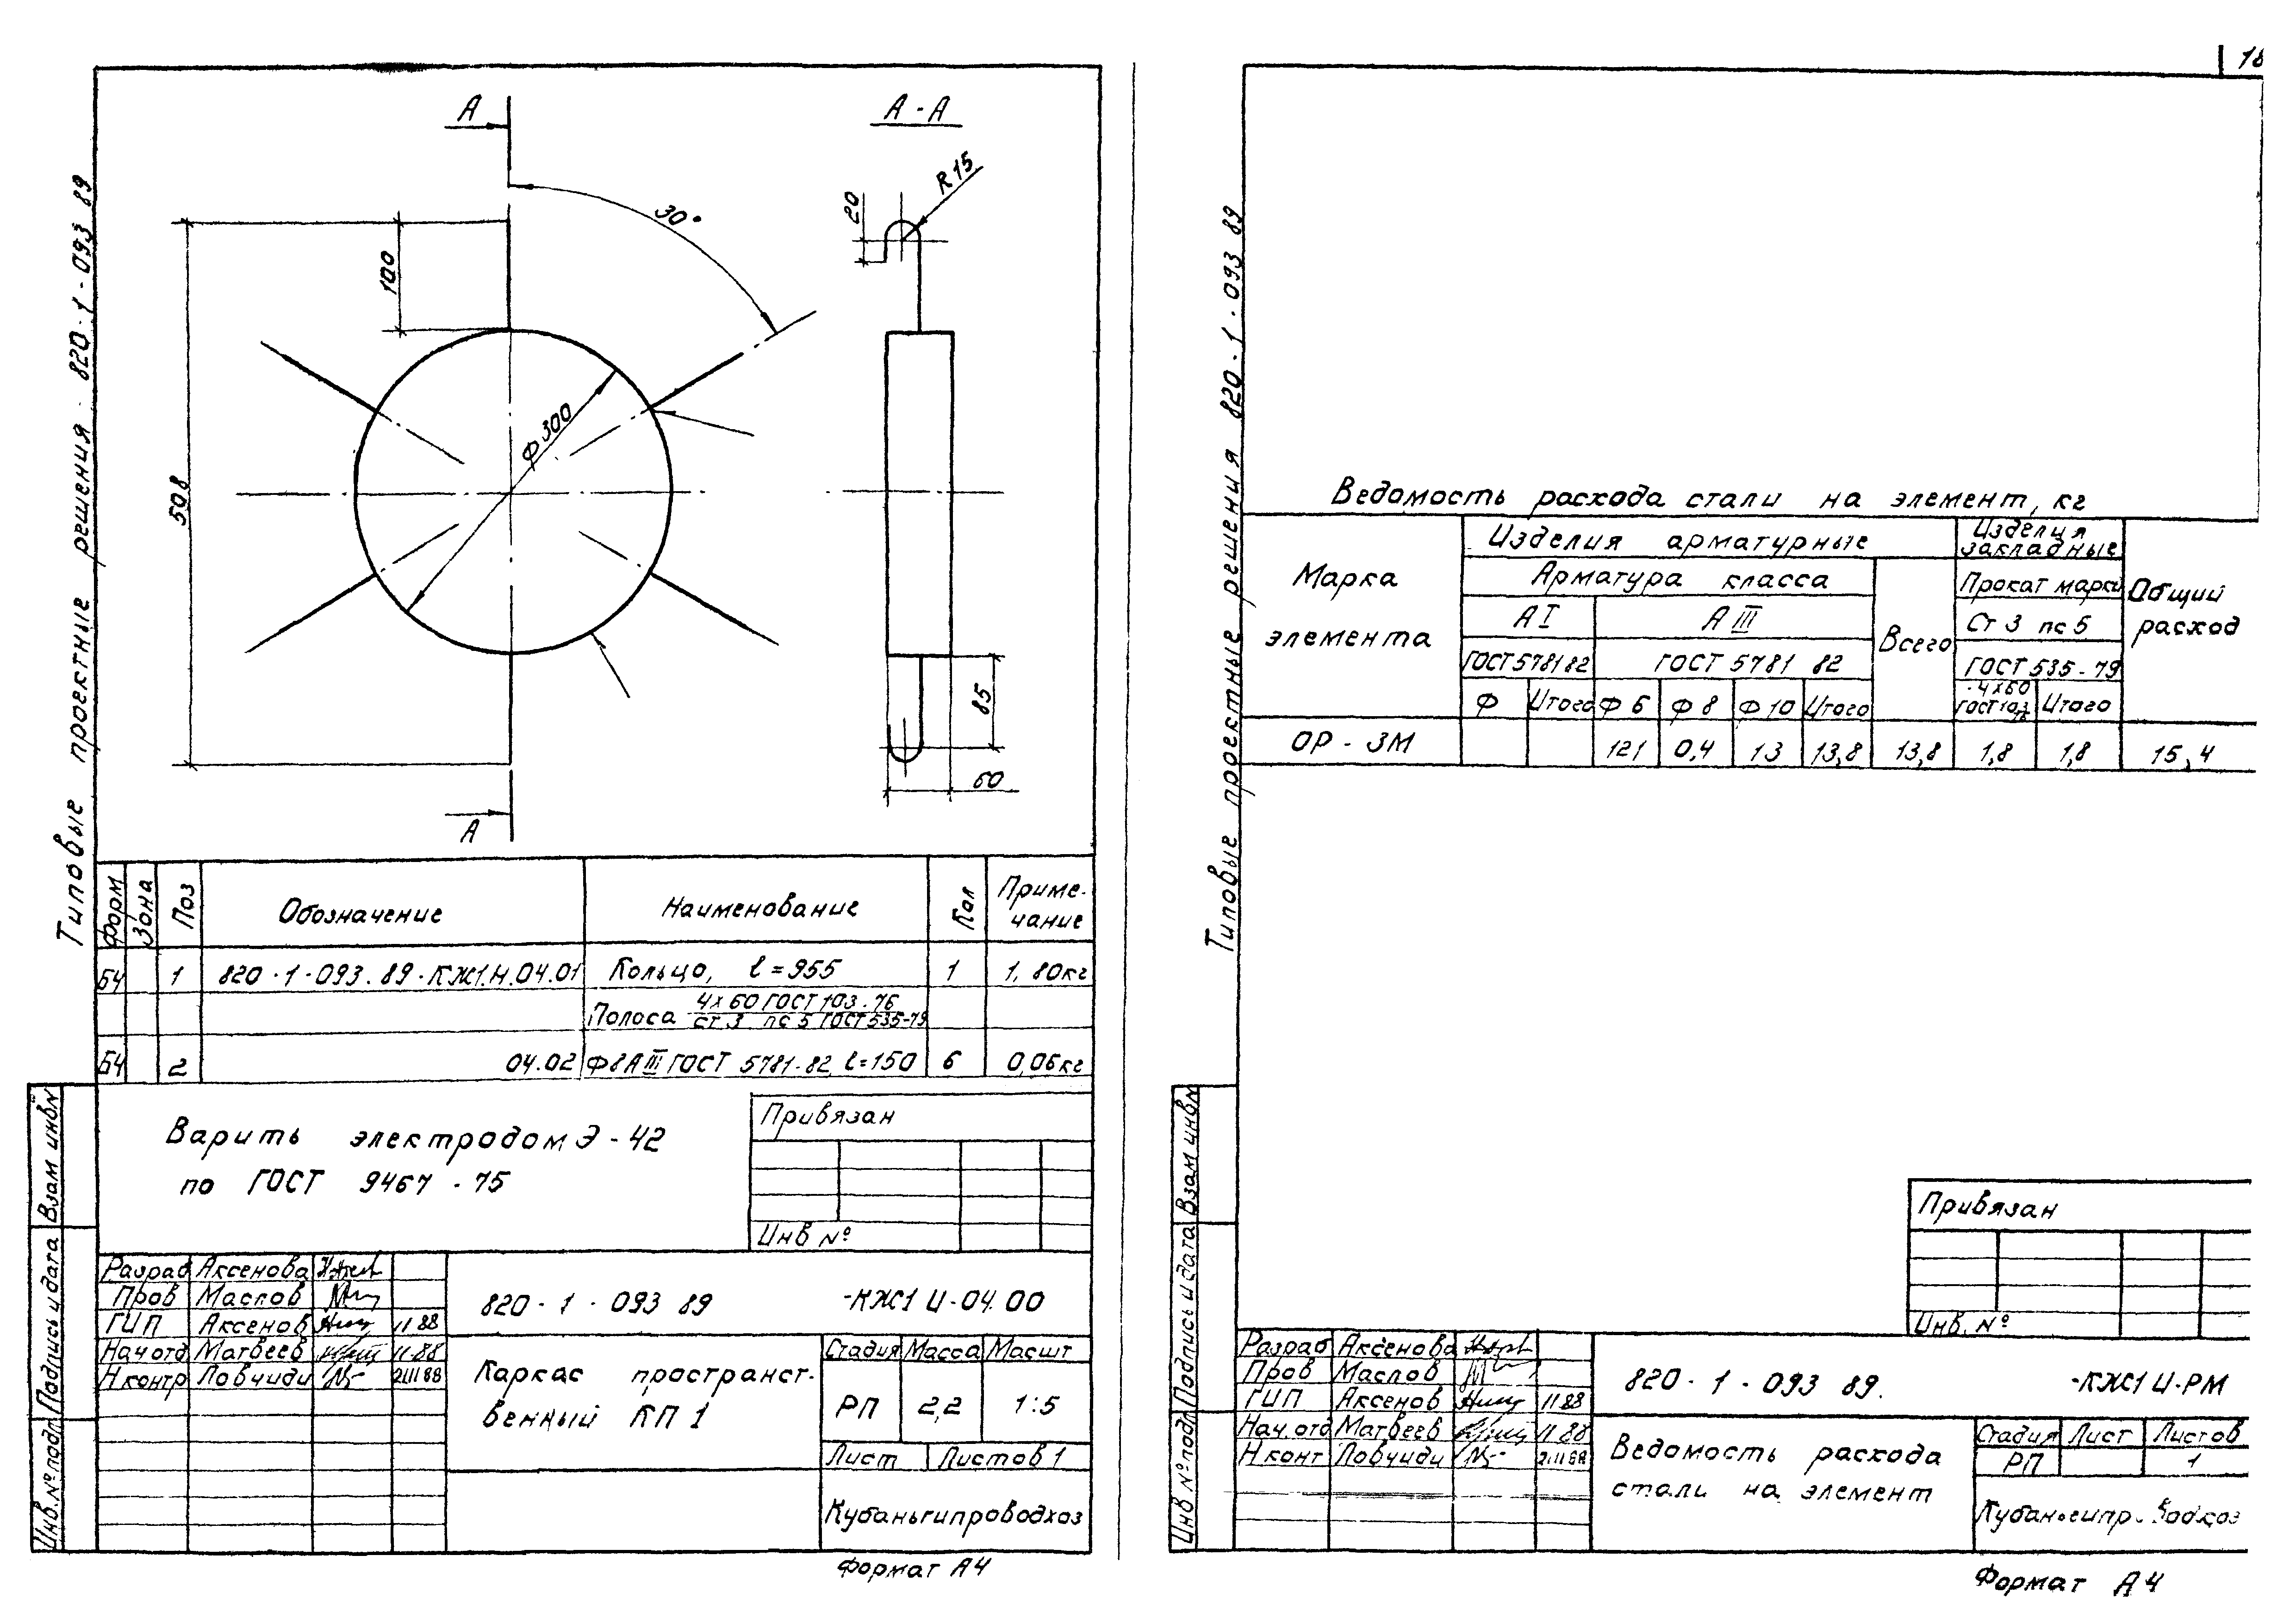 Типовые проектные решения 820-1-093 89
А
А
А - А
30°
100
508
Ф 300
20
R 15
85
60
Форм
Зона
Поз
Обозначение
Наименование
Кол
Приме-
чание
БЧ 1 820-1-093.89-КЖ1.И.04.01 Кольцо, ℓ=955 1 1,80кг
Полоса 4х60 ГОСТ 103-76
ст 3 пс 5 ГОСТ 535-79
БЧ 2 04.02 Ф8АIII ГОСТ 5781-82, ℓ=150 6 0,06кг
Варить электродом Э-42
по ГОСТ 9467-75
Привязан
Инв №
Взам инв№
Подпись и дата
Инв.№подл
Разраб Аксенова
Пров Маслов
ГИП Аксенов 11 88
Нач отд Матвеев 11.88
Н контр Ловчиди
820-1-093 89 -КЖ1 И-04.00
Каркас пространст-
венный КП 1
Стадия Масса Масшт
РП 2,2 1:5
Лист Листов 1
Кубаньгипроводхоз
Формат А4
18
Типовые проектные решения 820-1-093 89
Ведомость расхода стали на элемент, кг
Марка
элемента
Изделия арматурные
Изделия
закладные
Арматура класса
Всего
Прокат марки
Общий
расход
А I
А III
Ст 3 пс 5
ГОСТ 5781 82
ГОСТ 5781 82
ГОСТ 535-79
Ф Итого Ф 6 Ф 8 Ф 10 Итого
-4х60
Итого
ОР-3М 121 0,4 13 13,8 13,8 1,8 1,8 15,4
Привязан
Инв. №
Взам инв№
Подпись и дата
Инв №подл
Разраб Аксенова
Пров Маслов
ГИП Аксенов 11 88
Нач.отд Матвеев 11 88
Н конт Ловчиди
820-1-093 89. -КЖ1 И-РМ
Ведомость расхода
стали на элемент
Стадия Лист Листов
РП 1
Кубаньгипроводхоз
Формат А4